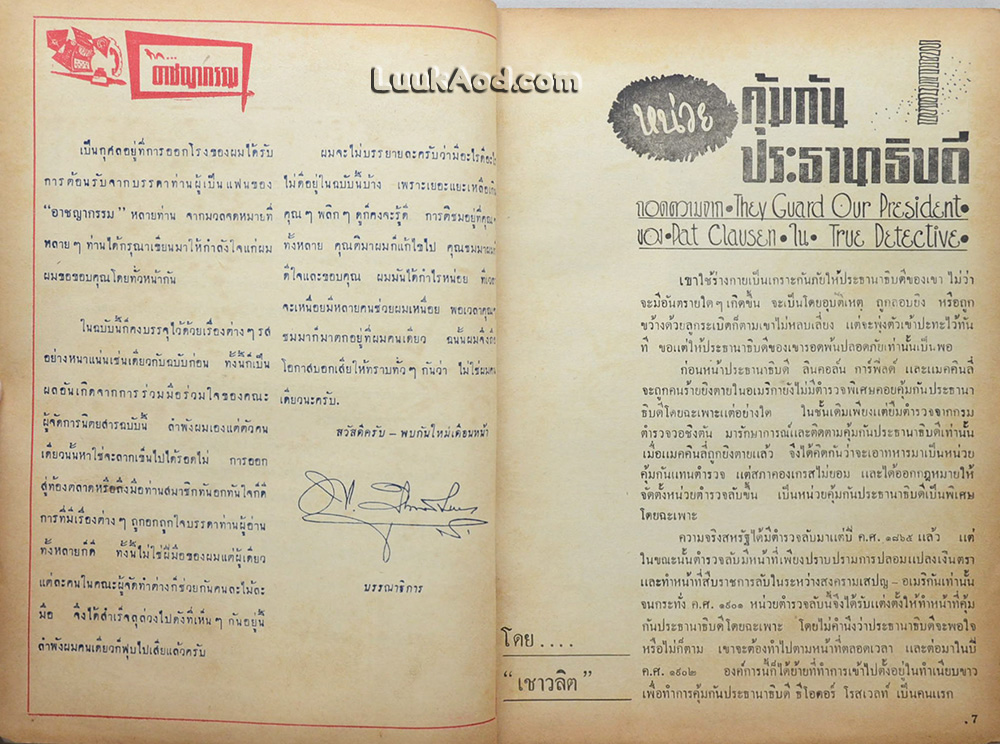 LuukAod.com
อาชญากรรม
เป็นกุศลอยู่ที่การออกโรงของผมได้รับ
การต้อนรับจากบรรดาท่านผู้เป็นแฟนของ
“อาชญากรรม” หลายท่าน จากมวลจดหมายที่
หลายๆ ท่านได้กรุณาเขียนมาให้กำลังใจแก่ผม
ผมขอขอบคุณโดยทั่วหน้ากัน
ในฉบับนี้ก็คงบรรจุไว้ด้วยเรื่องต่างๆ รส
อย่างหนาแน่นเช่นเดียวกับฉบับก่อน ทั้งนี้ก็เป็น
ผลอันเกิดจากการร่วมมือร่วมใจของคณะ
ผู้จัดการนิตยสารฉบับนี้ ลำพังผมเองแต่ตัวคน
เดียวนั้นหาใช่จะลากเข็นไปได้รอดไม่ การออก
สู่ท้องตลาดหรือถึงมือท่านสมาชิกทันอกทันใจก็ดี
การที่มีเรื่องต่างๆ ถูกอกถูกใจบรรดาท่านผู้อ่าน
ทั้งหลายก็ดี ทั้งนี้ไม่ใช่ฝีมือของผมแต่ผู้เดียว
แต่ละคนในคณะผู้จัดทำต่างก็ช่วยกันคนละไม้ละ
มือ จึงได้สำเร็จลุล่วงไปดังที่เห็นๆ กันอยู่นี้
ลำพังผมคนเดียวก็ฟุบไปเสียแล้วครับ
ผมจะไม่บรรยายละครับว่ามีอะไรดีอะไร
ไม่ดีอยู่ในฉบับนี้บ้าง เพราะเยอะแยะเหลือเกิน
คุณๆ พลิกๆ ดูก็คงจะรู้ดี การติชมอยู่ที่คุณๆ
ทั้งหลาย คุณติมาผมก็แก้ไขไป คุณชมมาผมก็
ดีใจและขอบคุณ ผมมันได้กำไรหน่อย ที่เวลา
จะเหนื่อยมีหลายคนช่วยผมเหนื่อย พอเวลาคุณ
ชมมาก็มาตกอยู่ที่ผมคนเดียว ฉนั้นผมจึงถือ
โอกาสบอกเสียให้ทราบทั่วๆ กันว่า ไม่ใช่ผมคน
เดียวนะครับ.
สวัสดีครับ – พบกันใหม่เดือนหน้า
บรรณาธิการ
หน่วย
คุ้มกัน
ประธานาธิบดี
ถอดความจาก • They Guard Our President •
ของ • Pat Clausen • ใน • True Detective •
เขาใช้ร่างกายเป็นเกราะกันภัยให้ประธานาธิบดีของเขา ไม่ว่า
จะมีอันตรายใดๆ เกิดขึ้น จะเป็นโดยอุบัติเหตุ ถูกลอบยิง หรือถูก
ขว้างด้วยลูกระเบิดก็ตามเขาไม่หลบเลี่ยง แต่จะพุ่งตัวเข้าปะทะไว้ทัน
ที ขอแต่ให้ประธานาธิบดีของเขารอดพ้นปลอดภัยเท่านั้นเป็นพอ
ก่อนหน้าประธานาธิบดี ลินคอล์น การ์ฟิลด์ และแมคคินลี่
จะถูกคนร้ายยิงตายในอเมริกายังไม่มีตำรวจพิเศษคอยคุ้มกันประธานา
ธิบดีโดยฉะเพาะแต่อย่างใด ในชั้นเดิมเพียงแต่ยืมตำรวจจากกรม
ตำรวจวอชิงตัน มารักษาการณ์และติดตามคุ้มกันประธานาธิบดีเท่านั้น
เมื่อแมคคินลี่ถูกยิงตายแล้ว จึงได้คิดกันว่าจะเอาทหารมาเป็นหน่วย
คุ้มกันแทนตำรวจ แต่สภาคองเกรสไม่ยอม และได้ออกกฎหมายให้
จัดตั้งหน่วยตำรวจลับขึ้น เป็นหน่วยคุ้มกันประธานาธิบดีเป็นพิเศษ
โดยฉะเพาะ
ความจริงสหรัฐได้มีตำรวจลับมาแต่ปี ค.ศ. ๑๘๖๕ แล้ว แต่
ในขณะนั้นตำรวจลับมีหน้าที่เพียงปราบปรามการปลอมแปลงเงินตรา
และทำหน้าที่สืบราชการลับในระหว่างสงครามเสปญ – อเมริกันเท่านั้น
จนกระทั่ง ค.ศ. ๑๙๐๑ หน่วยตำรวจลับนี้จึงได้รับแต่งตั้งให้ทำหน้าที่คุ้ม
กันประธานาธิบดีโดยฉะเพาะ โดยไม่คำนึงว่าประธานาธิบดีจะพอใจ
หรือไม่ก็ตาม เขาจะต้องทำไปตามหน้าที่ตลอดเวลา และต่อมาในปี
ค.ศ. ๑๙๐๒ องค์การนี้ก็ได้ย้ายที่ทำการเข้าไปตั้งอยู่ในทำเนียบขาว
เพื่อทำการคุ้มกันประธานาธิบดี ธีโอดอร์ โรสเวลท์ เป็นคนแรก
โดย . . . .
“เชาวลิต”
. 7